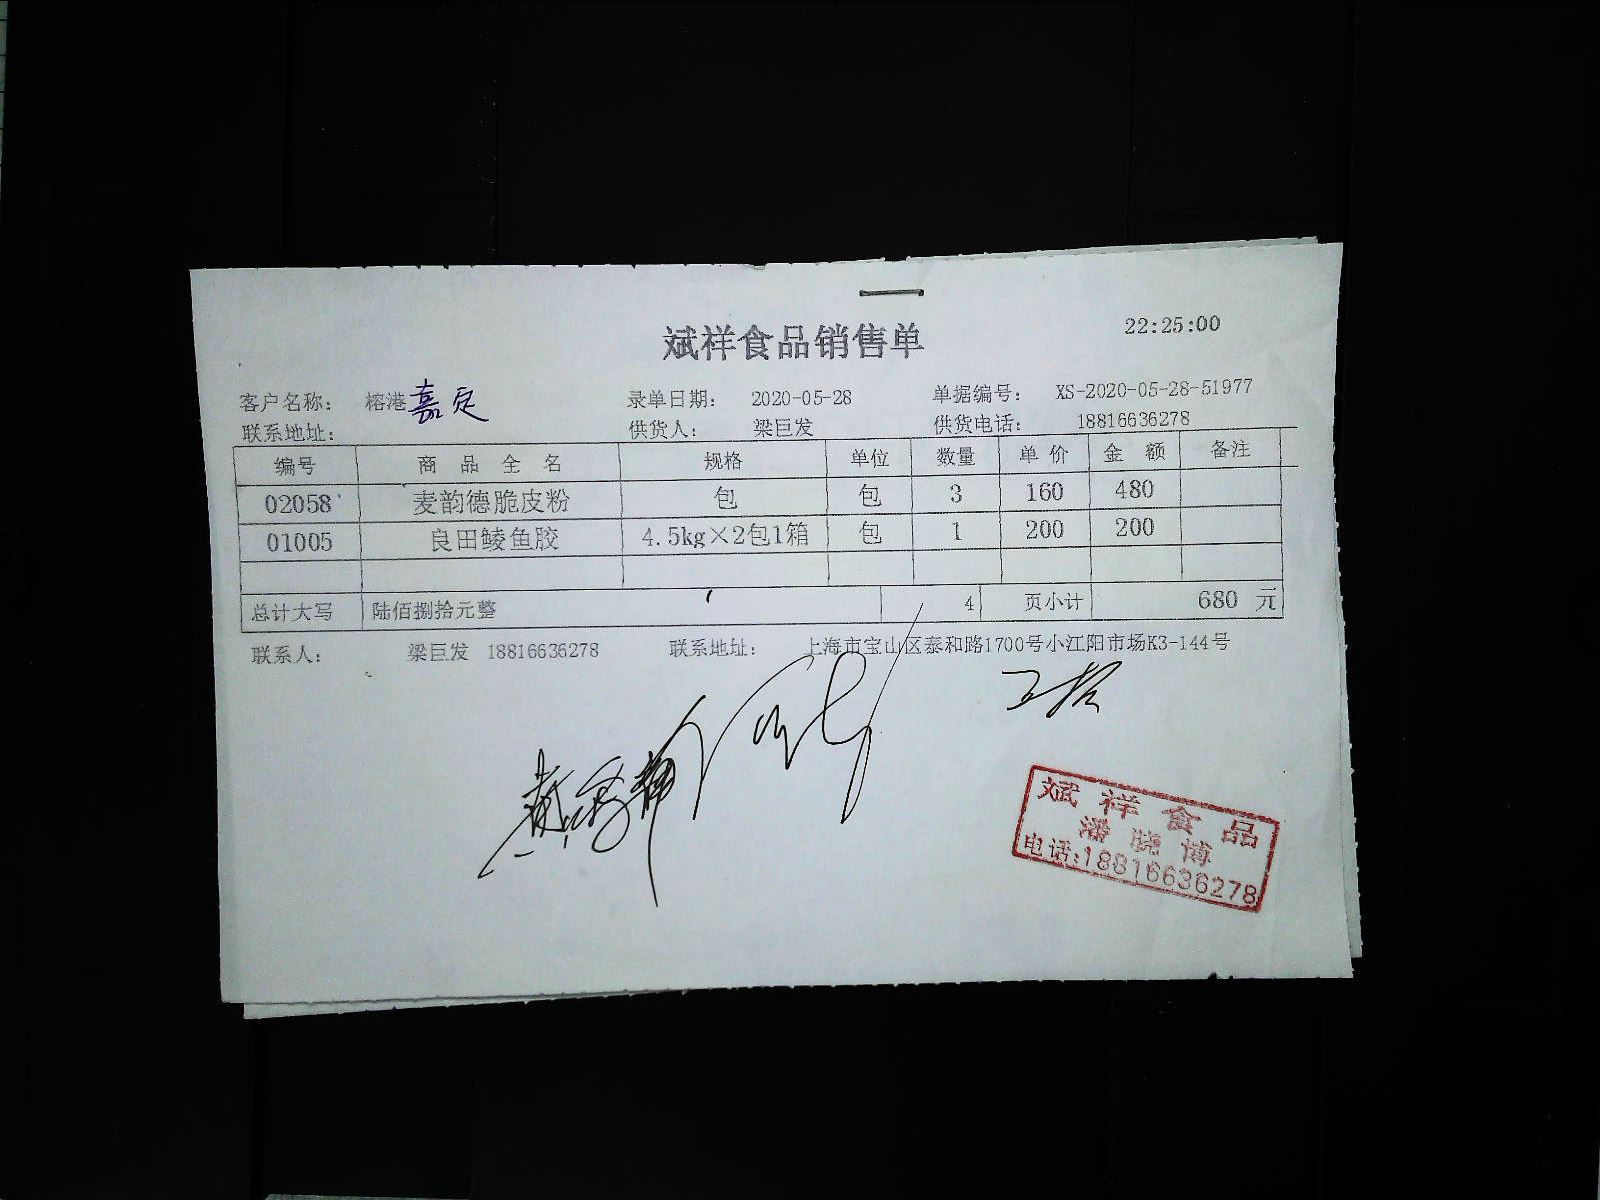 22:25:00
斌祥食品销售单
客户名称： 榕港嘉定 录单日期： 2020-05-28 单据编号： XS-2020-05-28-51977
联系地址： 供货人： 梁巨发 供货电话： 18816636278
编号 商品全名 规格 单位 数量 单价 金额 备注
02058 麦韵德脆皮粉 包 包 3 160 480
01005 良田鲮鱼胶 4.5kg×2包1箱 包 1 200 200
总计大写 陆佰捌拾元整 4 页小计 680 元
联系人： 梁巨发 18816636278 联系地址： 上海市宝山区泰和路1700号小江阳市场K3-144号
斌祥食品
潘晓博
电话:18816636278